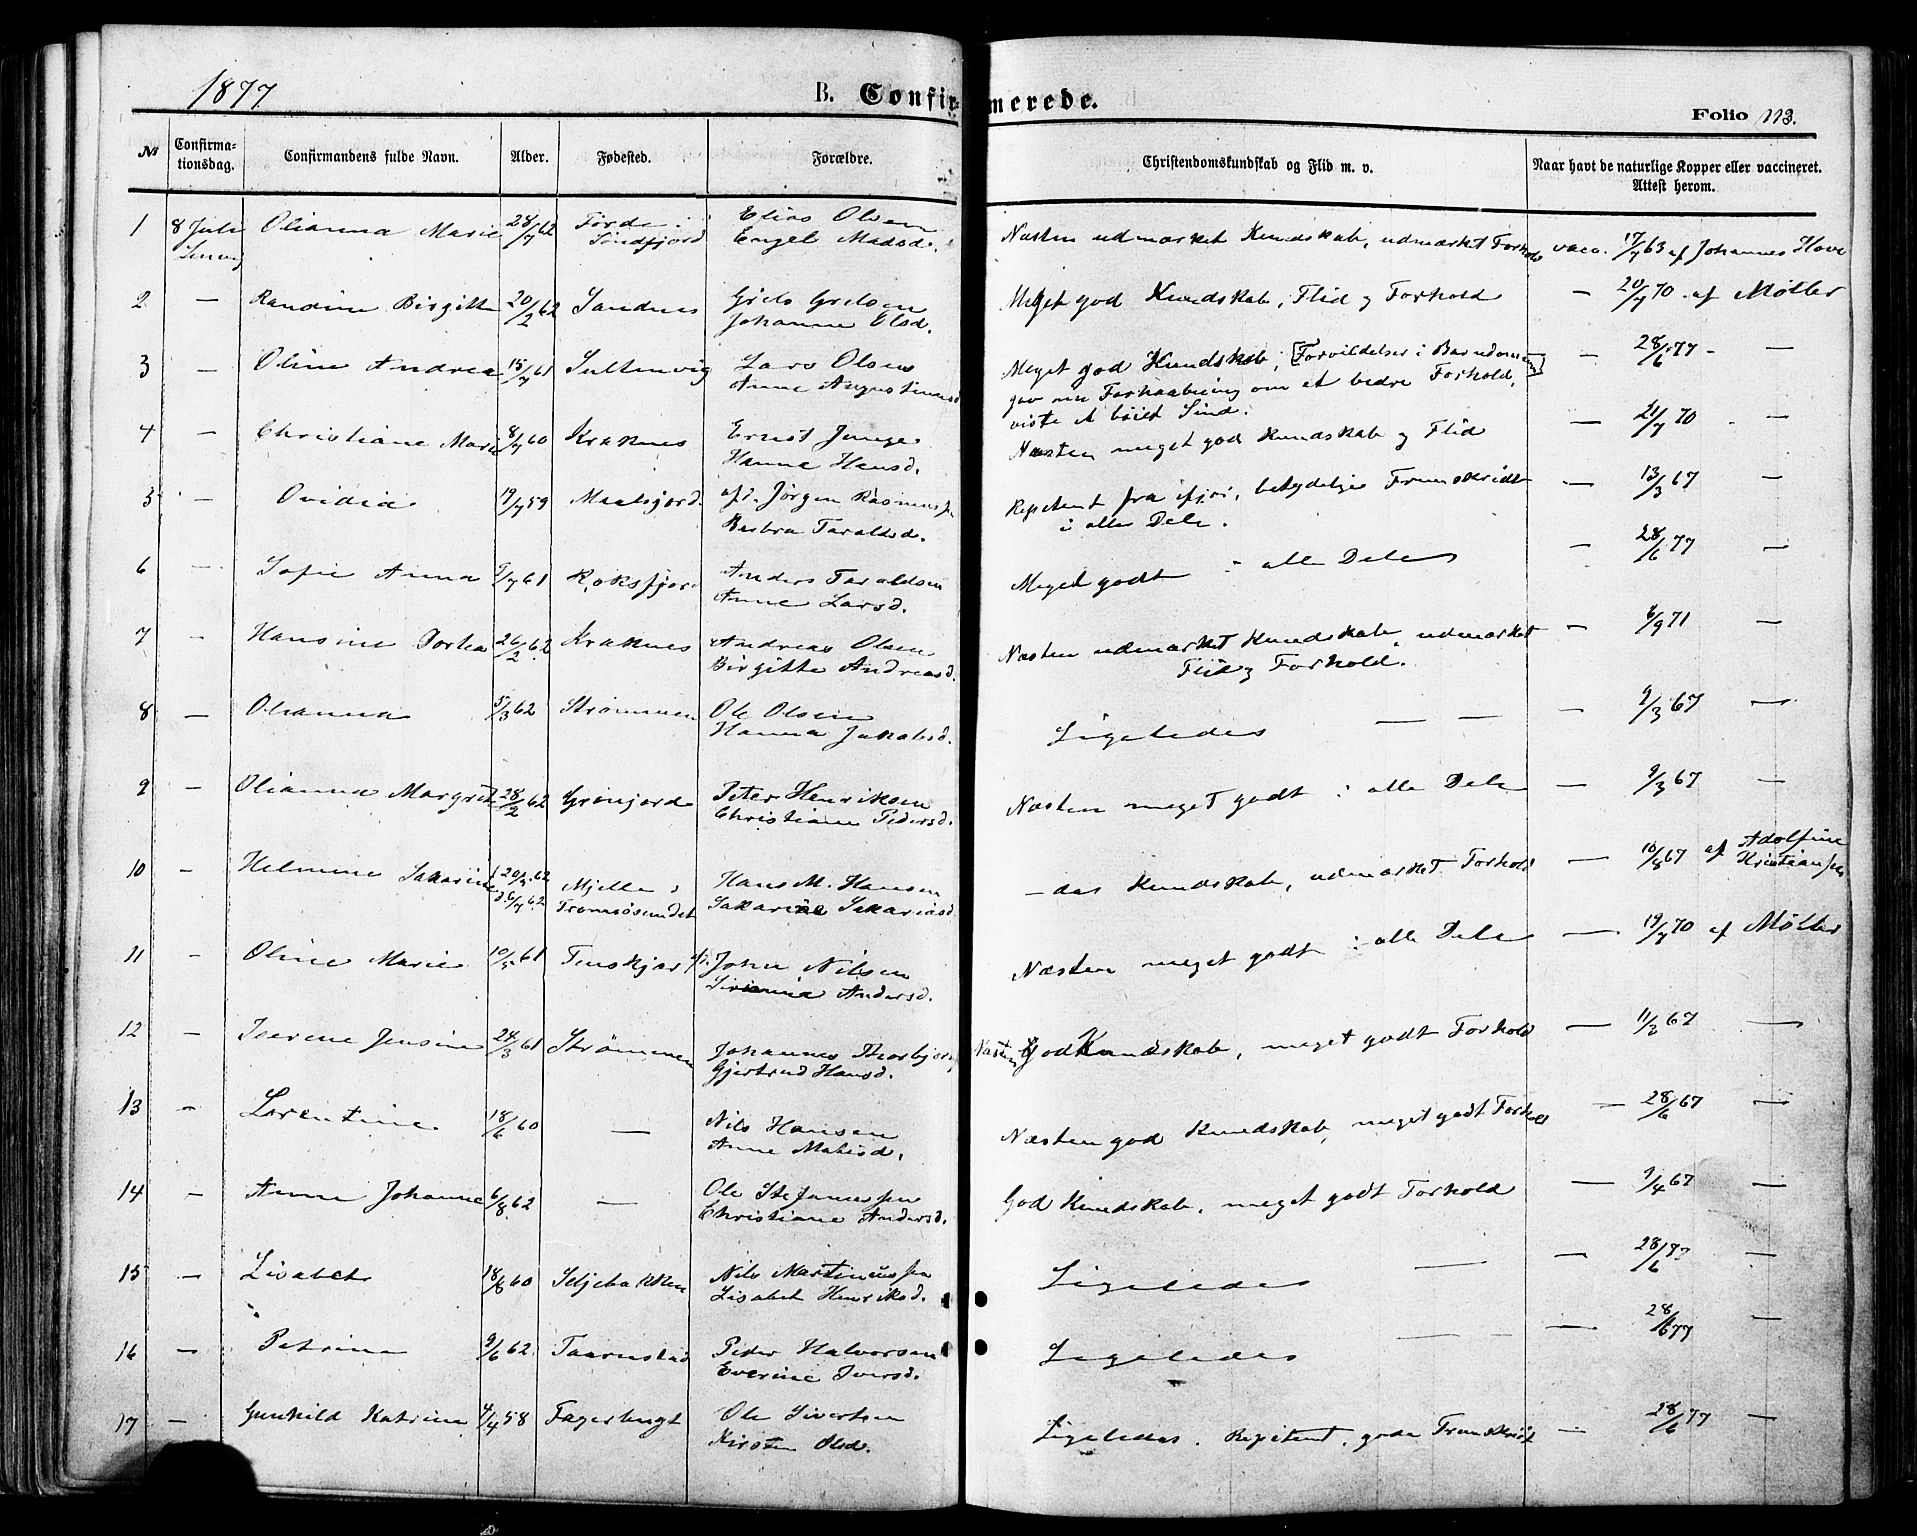 1877
B. Confirmerede.
Folio 113.
№ Confirmationsdag. Confirmandens fulde Navn. Alder. Fødested. Forældre. Christendomskundskab og Flid m. v. Naar havt de naturlige Kopper eller vaccineret. Attest herom.
1 8 Juli Olianna Marie 28/7 62 Førde i Søndfjord Elias Olsen Næsten udmærket Kundskab, udmærket Forhold vacc. 17/7 63 af Johannes Hove
Engel Madsd.
2 — Randine Birgitte 20/2 62 Sandnes Grels Grelsen Meget god Kundskab, Flid og Forhold — 20/7 70 af Møller
Johanne Olsd.
3 — Oline Andrea 15/7 61 Sultenvig Lars Olsen Meget god Kundskab, [Forvildelser i Barndommen] — 28/6 77 —
Anne Augustinusd. gav nu Forhaabning om et bedre Forhold,
viste et bøiet Sind.
4 — Christiane Marie 8/7 60 Kraknes Ernst Junge Næsten meget god Kundskab og Flid — 21/7 70 —
Hanna Hansd.
5 — Ovidia 19/7 59 Maalsjord afd. Jørgen Rasmussen Repetent fra ifjor, betydelige Fremskridt — 13/3 67 —
Berbra Taraldsd. i alle Dele.
6 — Sofie Anna 9/7 61 Roksfjor Anders Taraldsen Meget godt i alle Dele — 28/6 77 —
Anne Larsd.
7 — Hansine Dortea 26/2 62 Kraknes Andreas Olsen Næsten udmærket Kundskab, udmærket — 6/9 71 —
Birgitte Andreasd. Flid og Forhold.
8 — Olianna 5/3 62 Strømmen Ole Olsen Ligeledes — — — 9/3 67 —
Hanna Jakobsd.
9 — Olianna Margrete 28/2 62 Grønjord Peter Henriksen Næsten meget godt i alle Dele — 9/3 67 —
Christiane Pedersd.
10 — Helmine Sakarine f. 20/5 62 d. 6/7 62 Mjelle i Tromsøsundet Hans M. Hansen — das Kundskab, udmærket Forhold — 10/8 67 af Adolfine Kristiansen
Sakarine Sakariasd.
11 — Oline Marie 10/5 61 Finskjær John Nilsen Næsten meget godt i alle Dele — 19/7 70 af Møller
Andersd.
12 — Iverine Jensine 24/3 61 Strømmen Johannes Thorbjørns. Næsten God Kundskab, meget godt Forhold — 11/3 67 —
Gjertrud Hansd.
13 — Lorentine 18/6 60 — Nils Hansen Næsten god Kundskab, meget godt Forhold — 28/6 67 —
Anne Matisd.
14 — Anne Johanne 6/8 62 — Ole Stefanussen God Kundskab, meget godt Forhold — 9/4 67 —
Christiane Andersd.
15 — Lisabet 18/6 60 Seljebakken Nils Martinussen Ligeledes — — 28/6 77 —
Lisabet Henriksd.
16 — Petrine 9/6 62 Taarnstad Peder Halvorsen Ligeledes — — — 28/6 77 —
Everine Iversd.
17 — Gunhild Katrine 4/4 58 Fagerbugt Ole Sivertsen Ligeledes. Repetent, gode Fremskridt — 28/6 77 —
Kirsten Olsd.